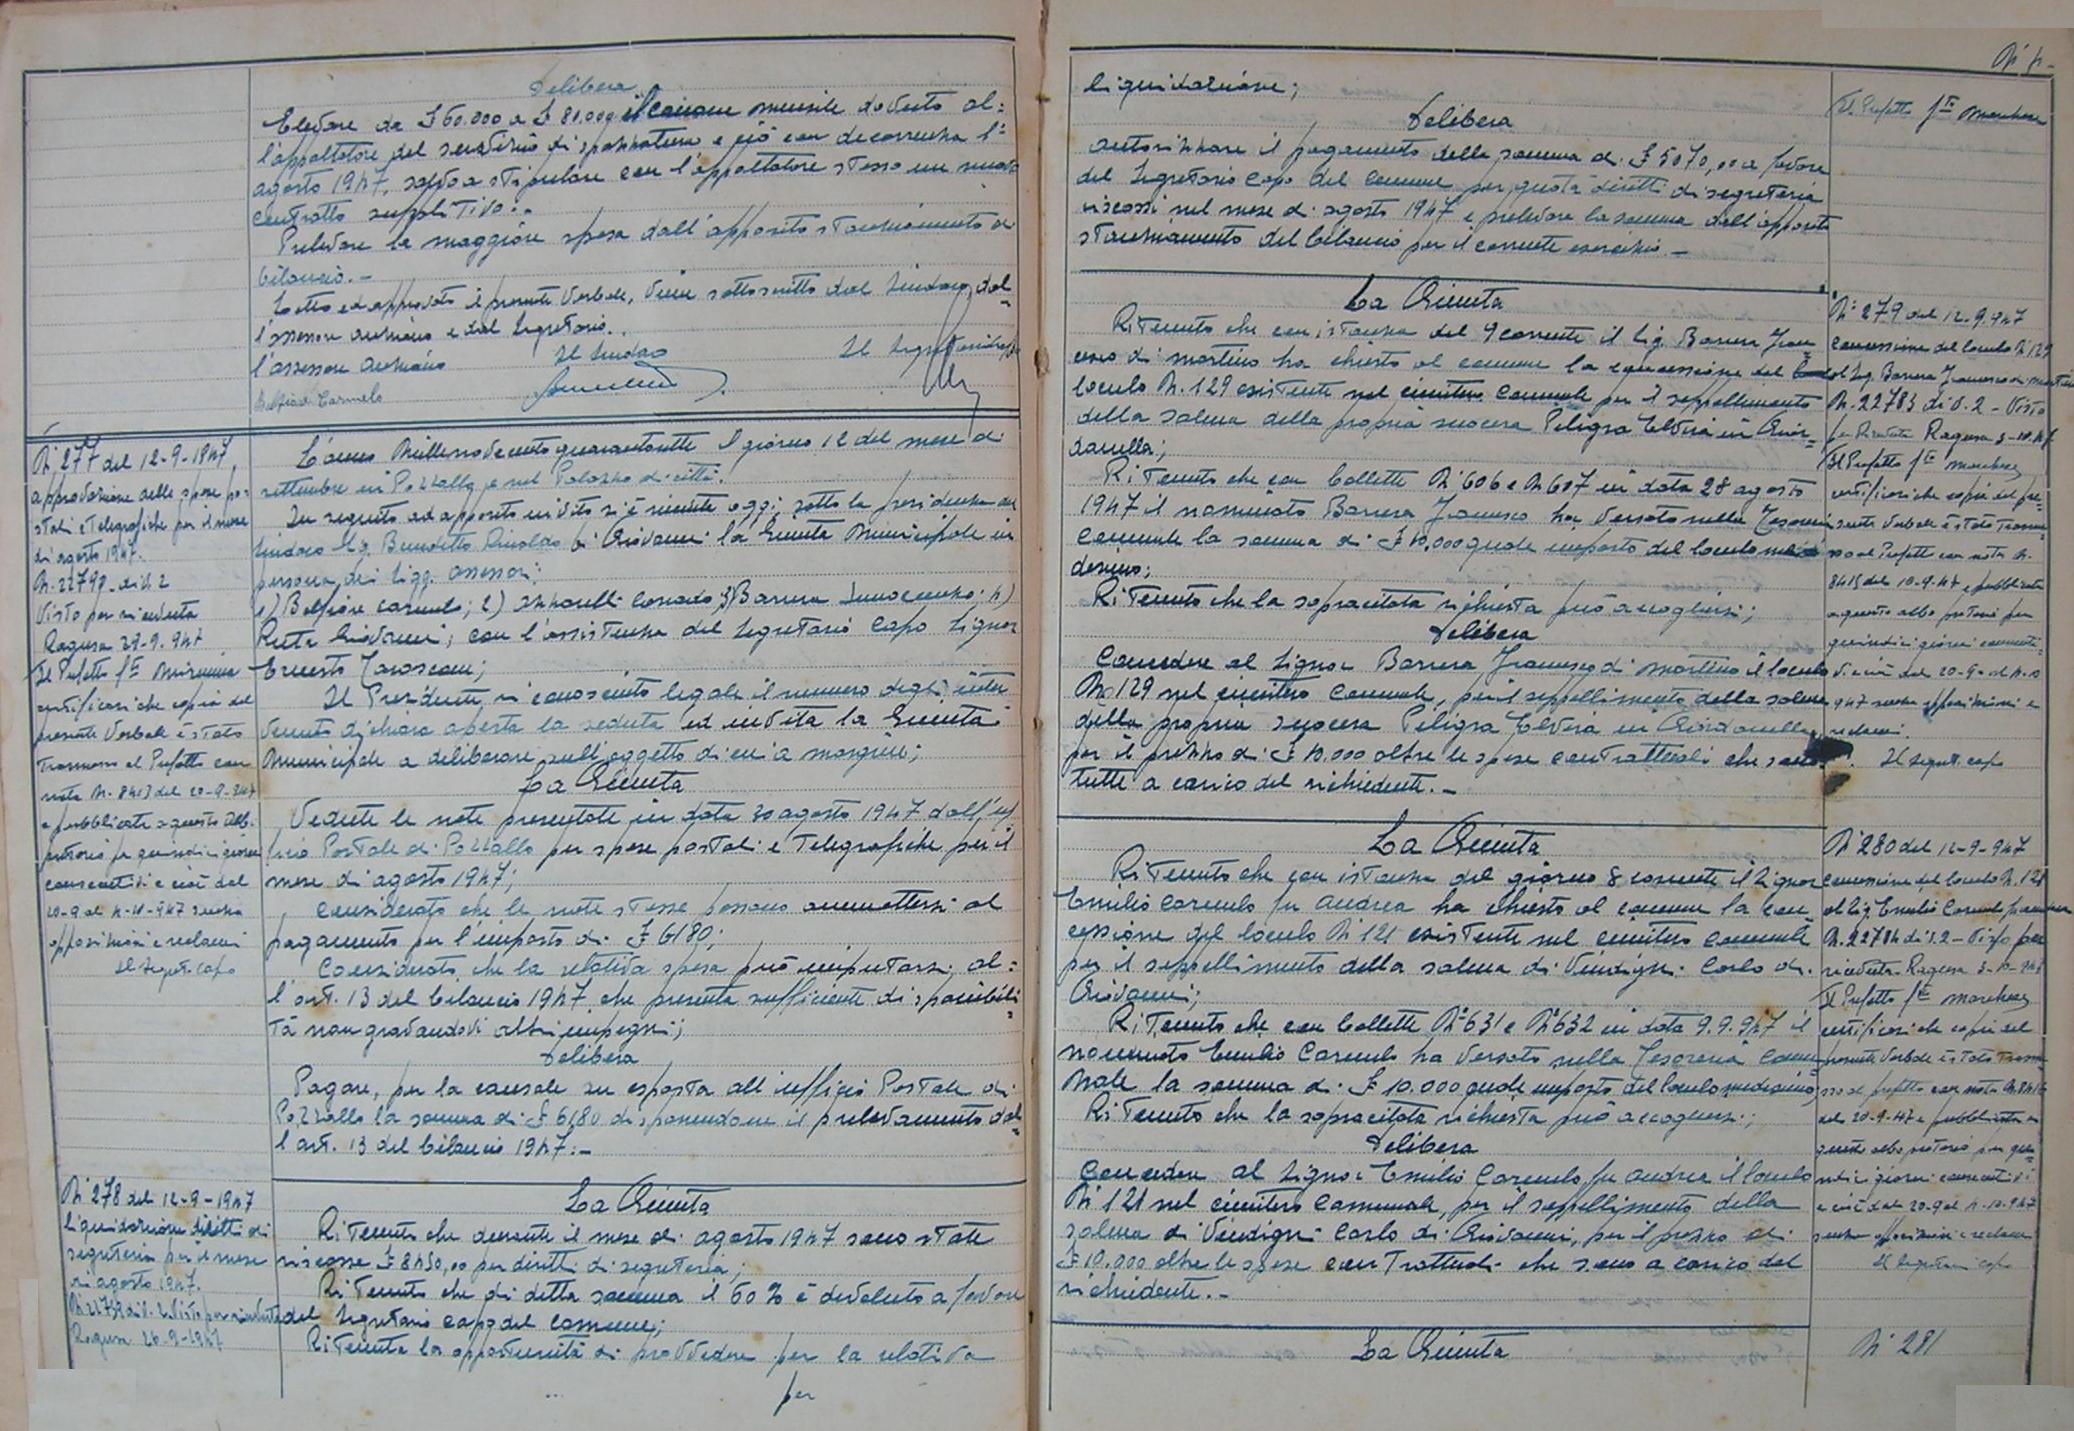 Delibera
Elevare da £ 60.000 a £ 81.000 il canone mensile dovuto al=
l'appaltatore del servizio di spazzatura e ciò con decorrenza 1°
agosto 1947, salvo a stipulare con l'appaltatore stesso un nuovo
contratto suppletivo.
Prelevare la maggiore spesa dall'apposito stanziamento di
bilancio.-
Letto ed approvato il presente verbale, viene sottoscritto dal Sindaco, dal=
l'assessore anziano e dal Segretario.
l'assessore anziano Il Sindaco Il Segretario
Belfiore Carmelo
N° 277 del 12-9-1947,
approvazione delle spese po=
stali e telegrafiche per il mese
di agosto 1947.
N. 22798 div. 2
Visto per ricevuta
Ragusa 29-9-947
Il Prefetto f.to
certificasi che copia del
presente verbale è stato
trasmesso al Prefetto con
nota N. 8413 del 20-9-947
e pubblicato a questo albo
pretorio per quindici giorni
consecutivi e cioè dal
20-9 al 4-10-947 senza
opposizioni e reclami
Il Segret. capo
L'anno Millenovecentoquarantasette il giorno 12 del mese di
settembre in Pozzallo e nel Palazzo di città.
In seguito ad apposito invito si è riunita oggi, sotto la presidenza del
Sindaco Sig. Benedetto Rinaldo di Giovanni la Giunta Municipale in
persona dei Sigg. assessori:
1) Belfiore Carmelo; 2) Azzarelli Corrado; 3) Barrera Innocenzo; 4)
Ruta Giovanni; con l'assistenza del Segretario Capo Signor
Ernesto
Il Presidente riconosciuto legale il numero degli inter
venuti dichiara aperta la seduta ed invita la Giunta
Municipale a deliberare sull'oggetto di cui a margine;
La Giunta
Vedute le note presentate in data 30 agosto 1947 dall'uf
ficio Postale di Pozzallo per spese postali e telegrafiche per il
mese di agosto 1947;
Considerato che le note stesse possono ammettersi al
pagamento per l'importo di £ 6180;
Considerato che la relativa spesa può imputarsi al=
l'art. 13 del bilancio 1947 che presenta sufficiente disponibili=
tà non gravandovi altri impegni;
Delibera
Pagare, per la causale su esposta all'ufficio Postale di
Pozzallo la somma di £ 6180 disponendone il prelevamento dal=
l'art. 13 del bilancio 1947.-
N° 278 del 12-9-1947
liquidazione diritti di
segreteria per il mese
di agosto 1947.
div. 2 Visto per ricevuta
Ragusa 26-9-1947
La Giunta
Ritenuto che durante il mese di agosto 1947 sono state
riscosse £ 8450,00 per diritti di segreteria;
Ritenuto che di detta somma il 60% è devoluto a favore
del Segretario capo del Comune;
Ritenuta la opportunità di provvedere per la relativa
per
liquidazione;
Delibera
autorizzare il pagamento della somma di £ 5070,00 a favore
del Segretario Capo del Comune per quota diritti di segreteria
riscossi nel mese di agosto 1947 e prelevare la somma dall'apposito
stanziamento del bilancio per il corrente esercizio.-
Il Prefetto f.to Marchese
La Giunta
Ritenuto che con istanza del 9 corrente il Sig. Barrera Fran=
cesco di Martino ha chiesto al comune la concessione del
loculo N. 129 esistente nel cimitero Comunale per il seppellimento
della salma della propria suocera Peligra Elvira in Gior=
danella;
Ritenuto che con bollette N° 606 e N° 607 in data 28 agosto
1947 il nominato Barrera Francesco ha versato nella Tesoreria
Comunale la somma di £ 10.000 quale importo del loculo me=
desimo;
Ritenuto che la sopracitata richiesta può accogliersi;
Delibera
Concedere al Signor Barrera Francesco di Martino il loculo
N° 129 nel cimitero Comunale, per il seppellimento della salma
della propria suocera Peligra Elvira in Giordanella
per il prezzo di £ 10.000 oltre le spese contrattuali che sono
tutte a carico del richiedente.-
N° 279 del 12-9-947
Concessione del loculo N° 129
al Sig. Barrera Francesco di Martino
N. 22783 div. 2 - Visto
per ricevuta Ragusa 3-10-47
Il Prefetto f.to Marchese
certificasi che copia del pre=
sente verbale è stato trasmes=
so al Prefetto con nota N.
8415 del 20-9-47 e pubblicato
a questo albo pretorio per
quindici giorni consecuti=
vi e cioè dal 20-9 al 4-10
947 senza opposizioni e
reclami.
Il Segret. capo
La Giunta
Ritenuto che con istanza del giorno 8 corrente il Signor
Emilio Carmelo fu Andrea ha chiesto al comune la con=
cessione del loculo N° 121 esistente nel cimitero Comunale
per il seppellimento della salma di Vindigni Carlo di
Giovanni;
Ritenuto che con bollette N° 631 e N° 632 in data 9.9.947 il
nominato Emilio Carmelo ha versato nella Tesoreria Comu=
nale la somma di £ 10.000 quale importo del loculo medesimo;
Ritenuto che la sopracitata richiesta può accogliersi;
Delibera
Concedere al Signor Emilio Carmelo fu Andrea il loculo
N° 121 nel cimitero Comunale, per il seppellimento della
salma di Vindigni Carlo di Giovanni, per il prezzo di
£ 10.000 oltre le spese contrattuali che sono a carico del
richiedente.-
N° 280 del 12-9-947
Concessione del loculo N. 121
al Sig. Emilio Carmelo fu Andrea
N. 22784 div. 2 - Visto per
ricevuta Ragusa 3-10-947
Il Prefetto f.to Marchese
certificasi che copia del
presente verbale è stato trasmes=
so al prefetto con nota N. 8416
del 20-9-47 e pubblicato a
questo albo pretorio per quin=
dici giorni consecutivi
e cioè dal 20-9 al 4-10-947
senza opposizioni e reclami
Il Segretario capo
La Giunta
N° 281